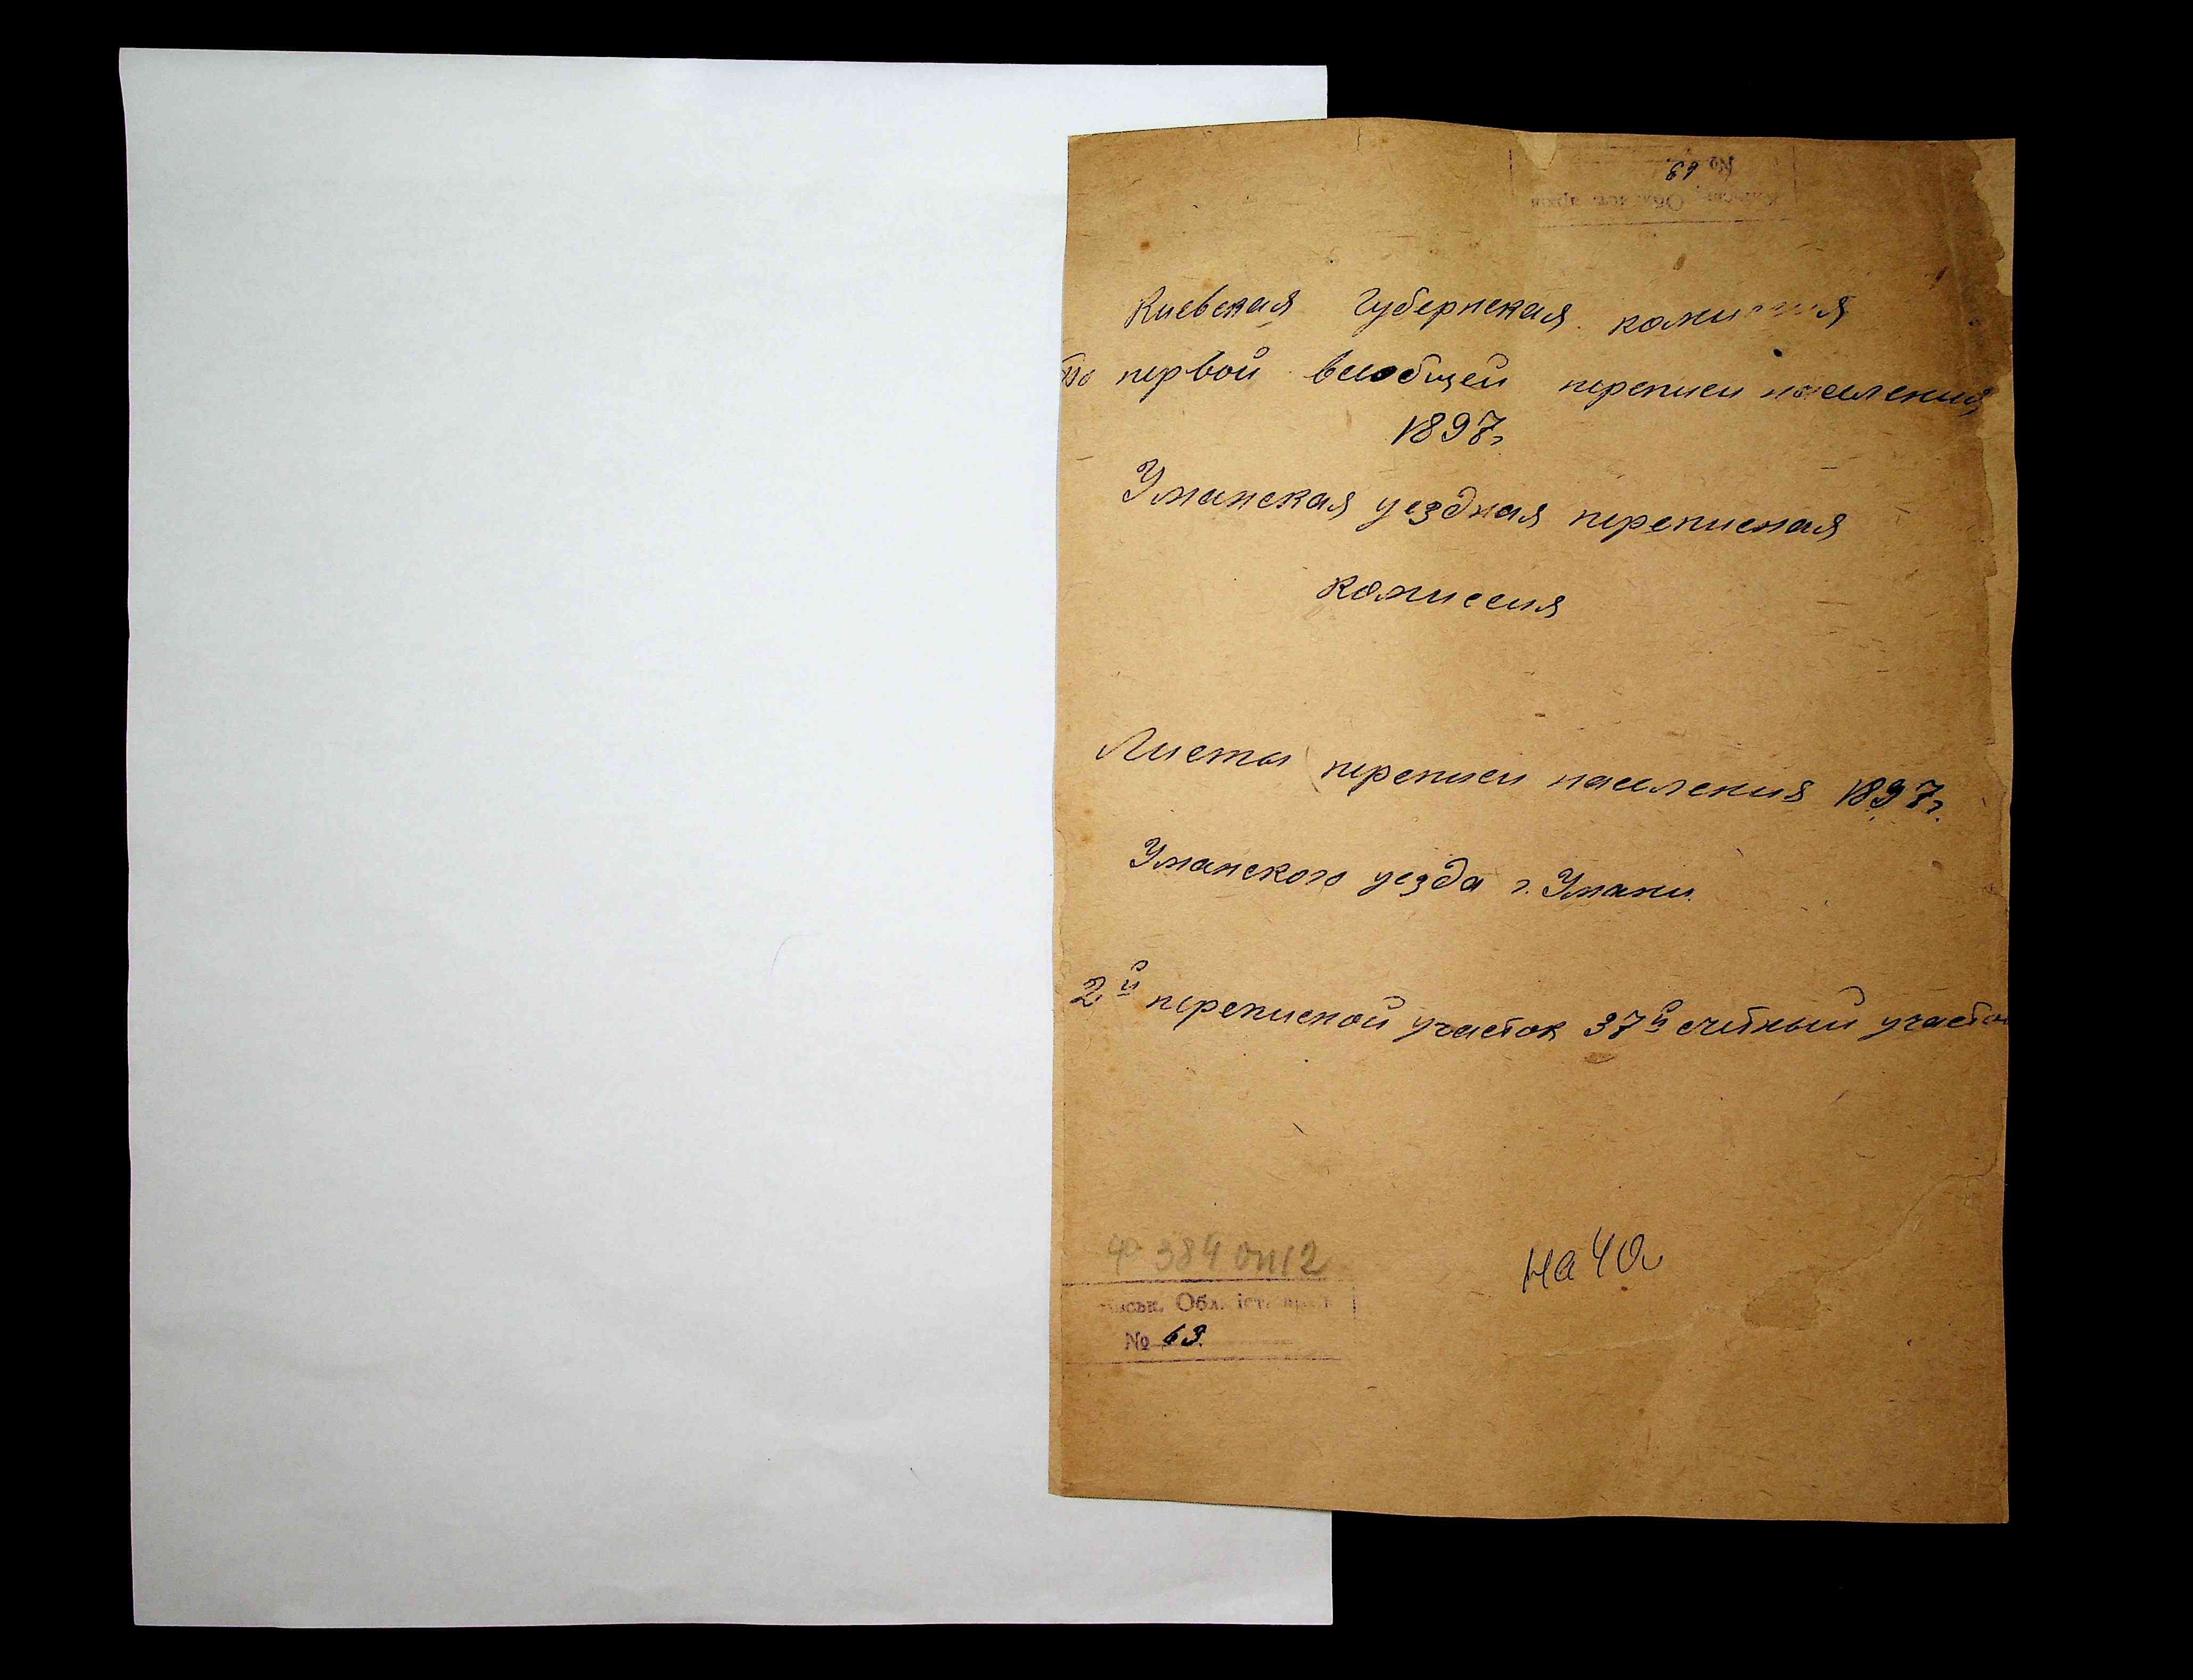 № 63.
Киевская губернская комиссия
По первой всеобщей переписи населения
1897г.
Уманская уездная переписная
комиссия
Листы переписи населения 1897г.
Уманского уезда г. Умани.
2й переписной участок 37й счетный участок
ф 384 оп 2
Обл. іст. архів
№ 63.
На 40